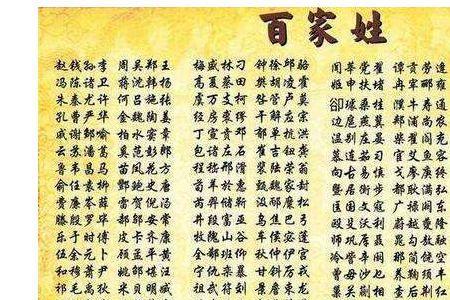 百家姓
赵钱孙李 周吴郑王 梅盛林刁 钟徐邱骆 闻莘党翟 谭贡劳逄
冯陈诸卫 蒋沈韩杨 高夏蔡田 樊胡凌霍 姬申扶堵 冉宰郦雍
朱秦尤许 何吕施张 虞万支柯 昝管卢莫 卻璩桑桂 濮牛寿通
孔曹严华 金魏陶姜 经房裘缪 干解应宗 边扈燕冀 郏浦尚农
戚谢邹喻 柏水窦章 丁宣贲邓 郁单杭洪 温别庄晏 柴瞿阎充
云苏潘葛 奚范彭郎 包诸左石 崔吉钮龚 慕连茹习 宦艾鱼容
鲁韦昌马 苗凤花方 程嵇邢滑 裴陆荣翁 向古易慎 戈廖庾终
俞任袁柳 酆鲍史唐 荀羊於惠 甄曲家封 暨居衡步 都耿满弘
费廉岑薛 雷贺倪汤 芮羿储靳 汲邴糜松 匡国文寇 广禄阙东
滕殷罗毕 郝邬安常 井段富巫 乌焦巴弓 殴殳沃利 蔚越夔隆
乐于时傅 皮卞齐康 牧隗山谷 车侯宓蓬 师巩厍聂 晁勾敖融
伍余元卜 顾孟平黄 全郗班仰 秋仲伊宫 冷訾辛阚 那简饶空
和穆萧尹 姚邵湛汪 宁仇栾暴 甘钭厉戎 曾毋沙乜 养鞠须丰